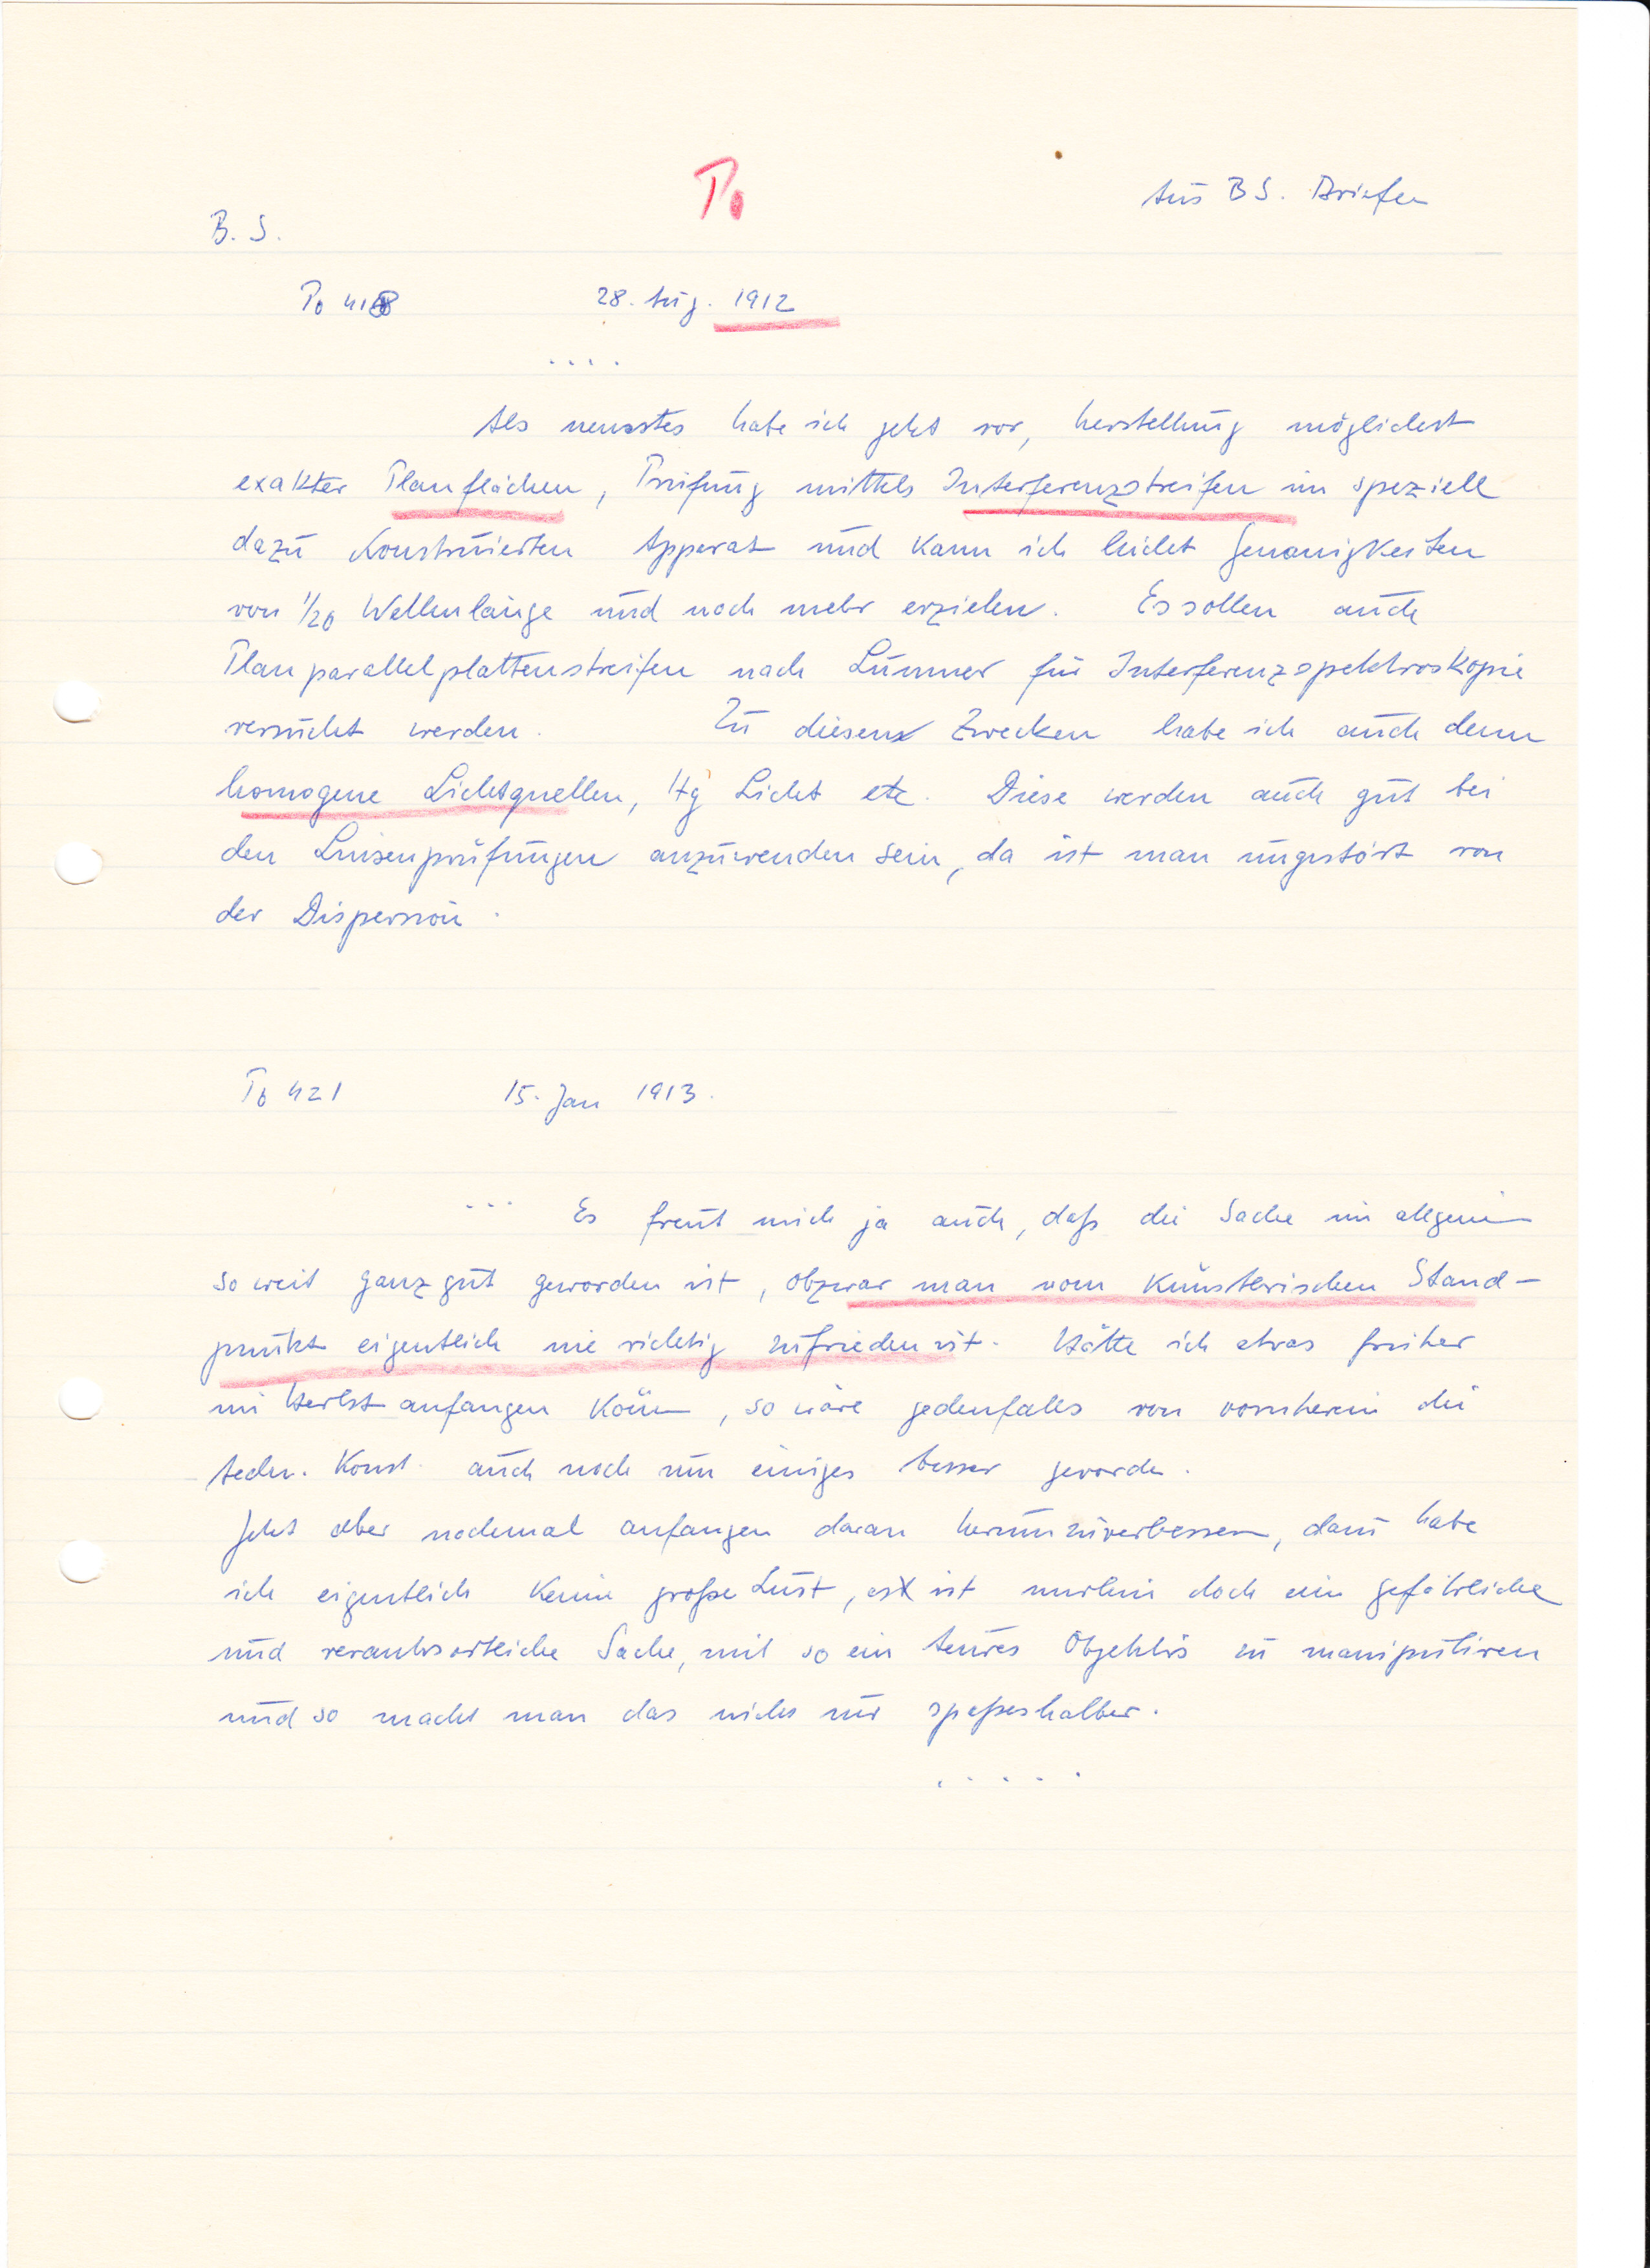 Po
Aus B S. Briefen
B. S.
Po 418 28. Aug. 1912
....
Als neuestes habe ich jetzt vor, herstellung möglichst
exakter Planflächen, Prüfung mittels Interferenzstreifen im speziell
dazu konstruierten Apparat und kann ich leicht Genauigkeiten
von 1/20 Wellenlänge und noch mehr erzielen. Es sollen auch
Planparallelplattenstreifen nach Lummer für Interferenzspektroskopie
versucht werden. Zu diesen Zwecken habe ich auch denn
homogene Lichtquellen, Hg Licht etc. Diese werden auch gut bei
den Linsenprüfungen anzuwenden sein, da ist man ungestört von
der Dispersion.
Po 421 15. Jan 1913.
... Es freut mich ja auch, daß die Sache im allgem
so weit ganz gut geworden ist, obzwar man vom künstlerischen Stand-
punkt eigentlich nie richtig zufrieden ist. Hätte ich etwas früher
im Herbst anfangen könn, so wäre jedenfalls von vornherein die
techn. Konst. auch noch um einiges besser geworden.
Jetzt aber nochmal anfangen daran herumzuverbessern, dazu habe
ich eigentlich keine große Lust, es ist immerhin doch ein gefährliche
und verantwortliche Sache, mit so ein teures Objektiv zu manipuliren
und so macht man das nicht nur spaßeshalber.
.....